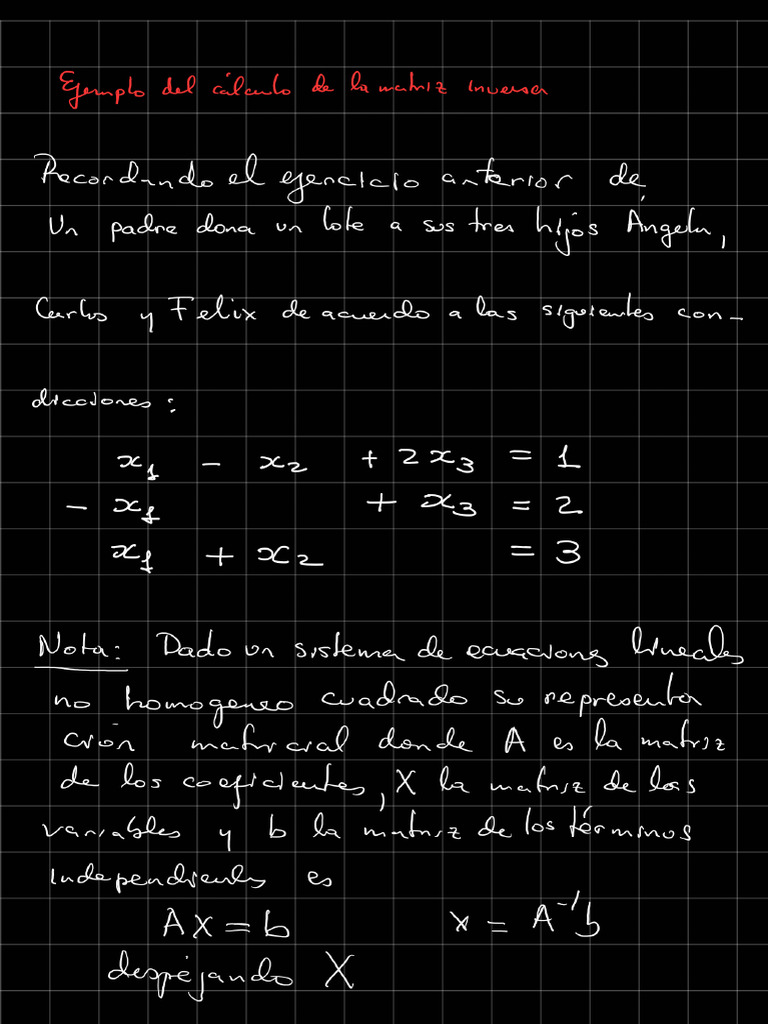 Ejemplo del cálculo de la matriz inversa
Recordando el ejercicio anterior de
Un padre dona un lote a sus tres hijos Ángela,
Carlos y Felix de acuerdo a las siguientes con-
dicciones:
x₁ - x₂ + 2x₃ = 1
- x₁ + x₃ = 2
x₁ + x₂ = 3
Nota: Dado un sistema de ecuaciones lineales
no homogeneo cuadrado su representa
ción matricial donde A es la matriz
de los coeficientes, X la matriz de las
variables y b la matriz de los términos
independientes es
AX = b x = A⁻¹b
despejando X